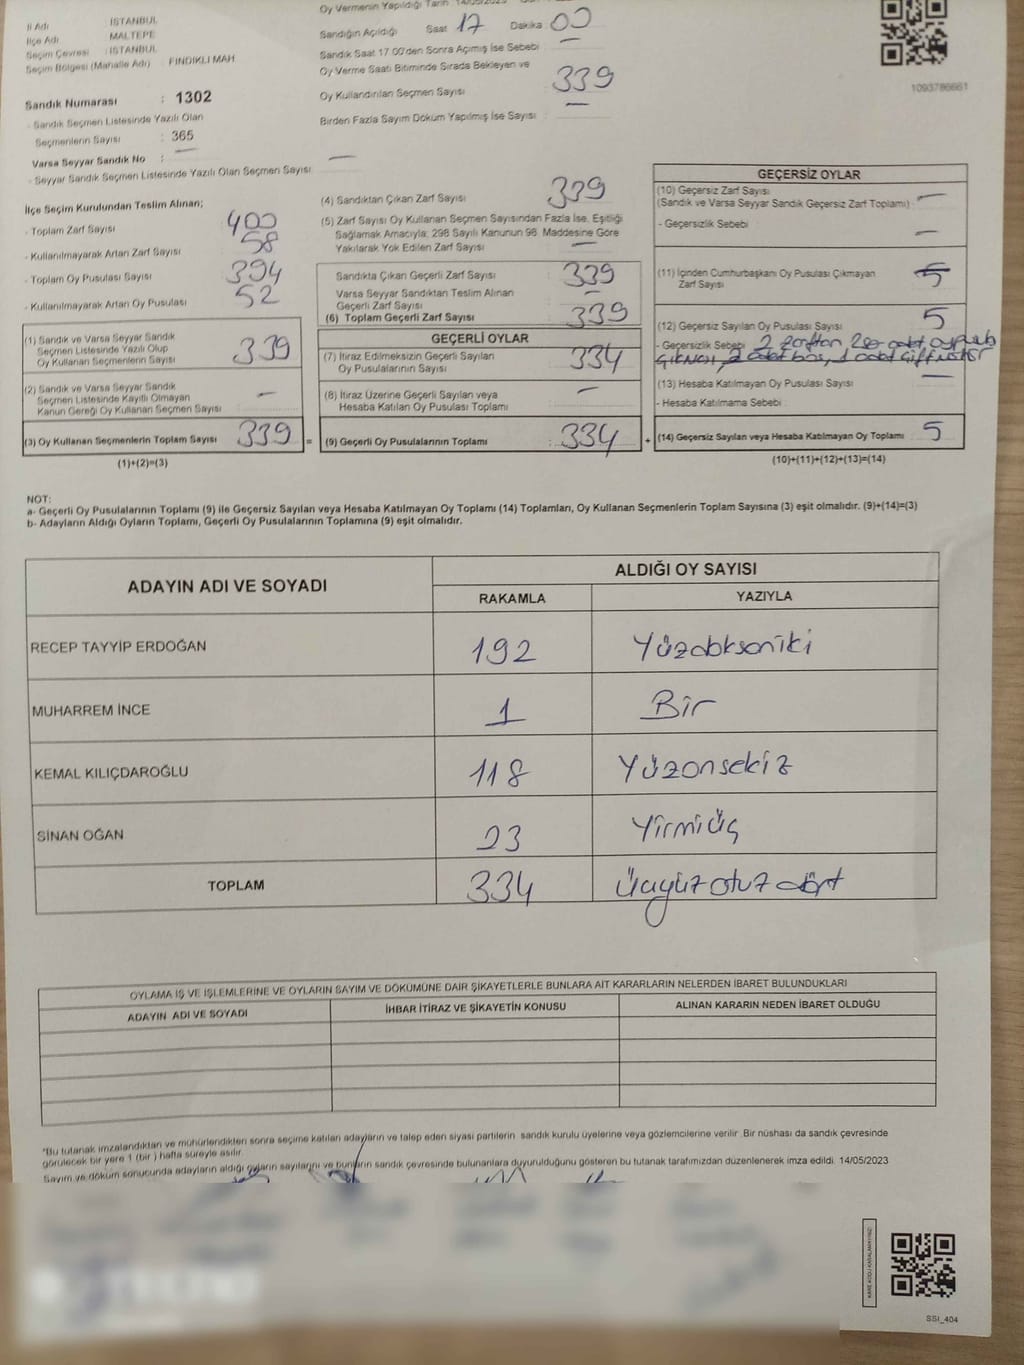 İl Adı : İSTANBUL
İlçe Adı : MALTEPE
Seçim Çevresi : İSTANBUL
Seçim Bölgesi (Mahalle Adı) : FINDIKLI MAH.
Sandık Numarası : 1302
- Sandık Seçmen Listesinde Yazılı Olan
Seçmenlerin Sayısı : 365
Varsa Seyyar Sandık No : —
- Seyyar Sandık Seçmen Listesinde Yazılı Olan Seçmen Sayısı : —
Oy Vermenin Yapıldığı Tarih 14/05/2023
Sandığın Açıldığı Saat 17 Dakika 00
Sandık Saat 17.00'den Sonra Açımış İse Sebebi —
Oy Verme Saati Bitiminde Sırada Bekleyen ve
Oy Kullandırılan Seçmen Sayısı 339
Birden Fazla Sayım Döküm Yapılmış İse Sayısı : —
1093786661
İlçe Seçim Kurulundan Teslim Alınan;
- Toplam Zarf Sayısı 400
- Kullanılmayarak Artan Zarf Sayısı 58
- Toplam Oy Pusulası Sayısı 394
- Kullanılmayarak Artan Oy Pusulası 52
(1) Sandık ve Varsa Seyyar Sandık
Seçmen Listesinde Yazılı Olup
Oy Kullanan Seçmenlerin Sayısı 339
(2) Sandık ve Varsa Seyyar Sandık
Seçmen Listesinde Kayıtlı Olmayan
Kanun Gereği Oy Kullanan Seçmen Sayısı —
(3) Oy Kullanan Seçmenlerin Toplam Sayısı 339 =
(1)+(2)=(3)
(4) Sandıktan Çıkan Zarf Sayısı 339
(5) Zarf Sayısı Oy Kullanan Seçmen Sayısından Fazla İse, Eşitliği
Sağlamak Amacıyla; 298 Sayılı Kanunun 98. Maddesine Göre
Yakılarak Yok Edilen Zarf Sayısı —
Sandıkta Çıkan Geçerli Zarf Sayısı 339
Varsa Seyyar Sandıktan Teslim Alınan
Geçerli Zarf Sayısı —
(6) Toplam Geçerli Zarf Sayısı 339
GEÇERLİ OYLAR
(7) İtiraz Edilmeksizin Geçerli Sayılan
Oy Pusulalarının Sayısı 334
(8) İtiraz Üzerine Geçerli Sayılan veya
Hesaba Katılan Oy Pusulası Toplamı —
(9) Geçerli Oy Pusulalarının Toplamı : 334 +
GEÇERSİZ OYLAR
(10) Geçersiz Zarf Sayısı
(Sandık ve Varsa Seyyar Sandık Geçersiz Zarf Toplamı) : —
- Geçersizlik Sebebi —
(11) İçinden Cumhurbaşkanı Oy Pusulası Çıkmayan
Zarf Sayısı 5
(12) Geçersiz Sayılan Oy Pusulası Sayısı 5
- Geçersizlik Sebebi 2 zarftan 2şer adet oy pusula
çıkması, 2 adet boş, 1 adet çift mühür
(13) Hesaba Katılmayan Oy Pusulası Sayısı —
- Hesaba Katılmama Sebebi :
(14) Geçersiz Sayılan veya Hesaba Katılmayan Oy Toplamı 5
(10)+(11)+(12)+(13)=(14)
NOT:
a- Geçerli Oy Pusulalarının Toplamı (9) ile Geçersiz Sayılan veya Hesaba Katılmayan Oy Toplamı (14) Toplamları, Oy Kullanan Seçmenlerin Toplam Sayısına (3) eşit olmalıdır. (9)+(14)=(3)
b- Adayların Aldığı Oyların Toplamı, Geçerli Oy Pusulalarının Toplamına (9) eşit olmalıdır.
ADAYIN ADI VE SOYADI
ALDIĞI OY SAYISI
RAKAMLA YAZIYLA
RECEP TAYYİP ERDOĞAN 192 Yüzdoksaniki
MUHARREM İNCE 1 Bir
KEMAL KILIÇDAROĞLU 118 Yüzonsekiz
SİNAN OĞAN 23 Yirmiüç
TOPLAM 334 Üçyüz otuz dört
OYLAMA İŞ VE İŞLEMLERİNE VE OYLARIN SAYIM VE DÖKÜMÜNE DAİR ŞİKAYETLERLE BUNLARA AİT KARARLARIN NELERDEN İBARET BULUNDUKLARI
ADAYIN ADI VE SOYADI İHBAR İTİRAZ VE ŞİKAYETİN KONUSU ALINAN KARARIN NEDEN İBARET OLDUĞU
*Bu tutanak imzalandıktan ve mühürlendikten sonra seçime katılan adayların ve talep eden siyasi partilerin sandık kurulu üyelerine veya gözlemcilerine verilir. Bir nüshası da sandık çevresinde
görülecek bir yere 1 (bir) hafta süreyle asılır.
Sayım ve döküm sonucunda adayların aldığı oyların sayılarını ve bunların sandık çevresinde bulunanlara duyurulduğunu gösteren bu tutanak tarafımızdan düzenlenerek imza edildi. 14/05/2023
SSI_404